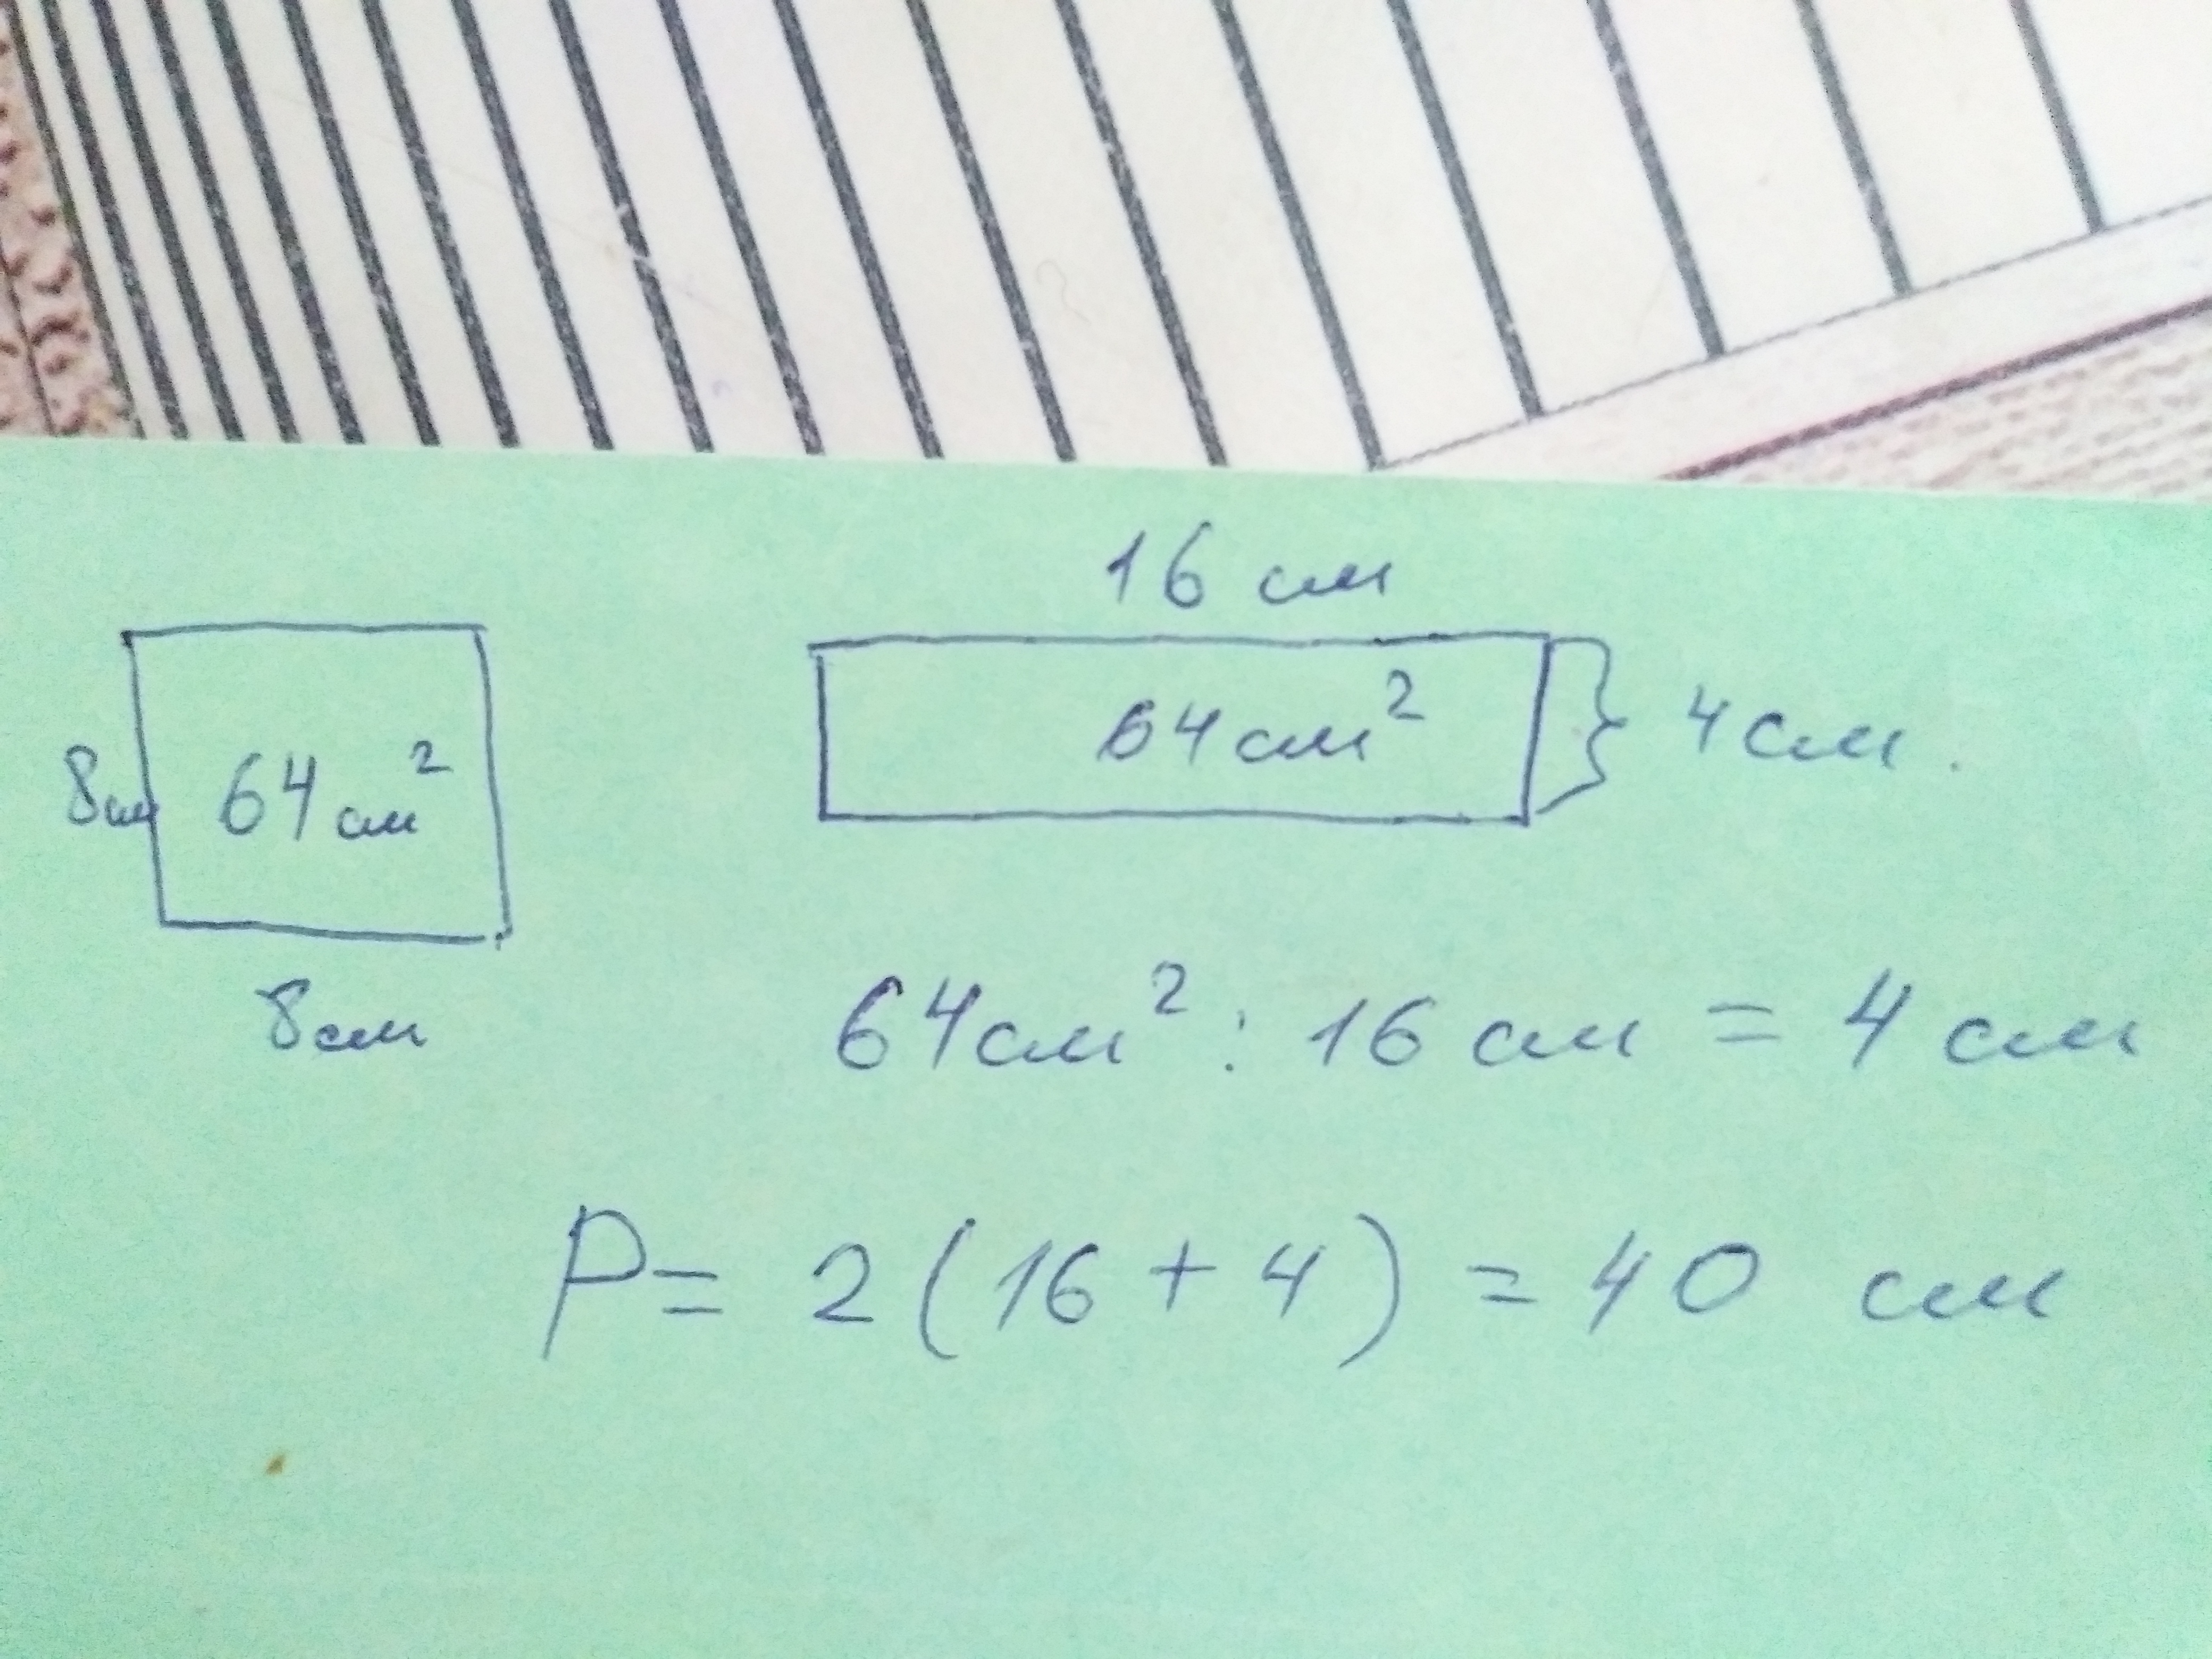 16 см
64 см²
4 см.
8см
64 см²
8см
64 см² : 16 см = 4 см
P = 2 (16 + 4) = 40 см